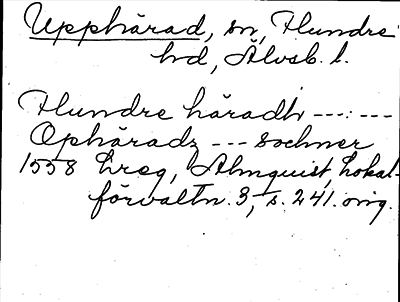 Upphärad, sn, Flundre
hd, Älvsb. l.
Flundre häradh ---:---
Ophäradz --- sochner
1558 Lreg, Almquist, Lokal-
förvaltn. 3, s. 241. orig.